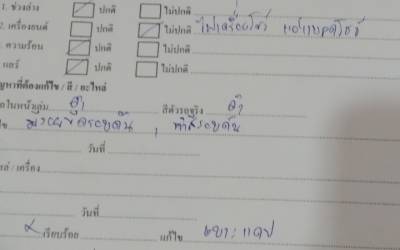 1. ช่วงล่าง ปกติ ไม่ปกติ
2. เครื่องยนต์ ปกติ ไม่ปกติ ไฟเครื่องโชว์
. ความร้อน ปกติ ไม่ปกติ
แอร์ ปกติ ไม่ปกติ
ญหาที่ต้องแก้ไข / สี / อะไหล่
ในหน้าเล่ม ดำ สีตัวรถจริง ดำ
ไข รอบคัน , ทำสีรอบคัน
วันที่
ล่ / เครื่อง
วันที่
เรียบร้อย แก้ไข เบาะ